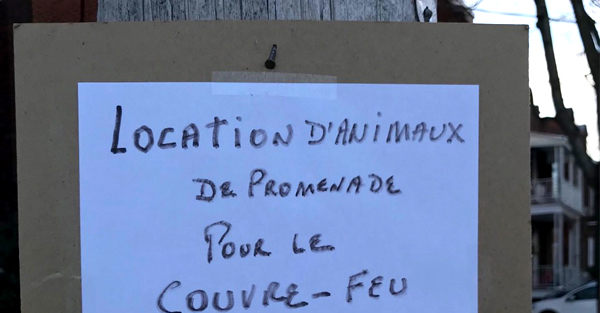 LOCATION D'ANIMAUX
DE PROMENADE
POUR LE
COUVRE-FEU